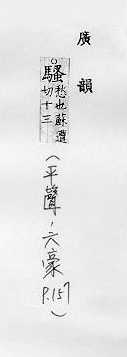 廣韻
○騷愁也蘇遭
切十三
(平聲，六豪 P.157)